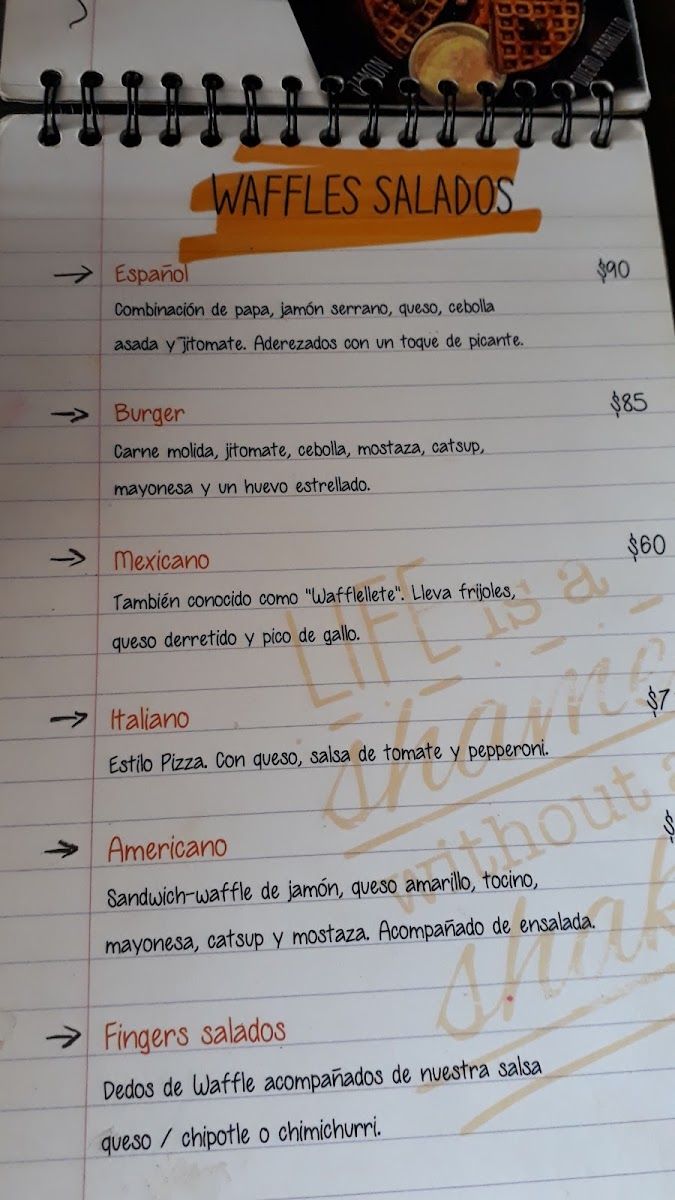 JAMÓN
QUESO AMARILLO
WAFFLES SALADOS
Español $90
Combinación de papa, jamón serrano, queso, cebolla
asada y jitomate. Aderezados con un toque de picante.
Burger $85
Carne molida, jitomate, cebolla, mostaza, catsup,
mayonesa y un huevo estrellado.
Mexicano $60
También conocido como "Wafflellete". Lleva frijoles,
queso derretido y pico de gallo.
Italiano $7
Estilo Pizza. Con queso, salsa de tomate y pepperoni.
Americano $
Sandwich-waffle de jamón, queso amarillo, tocino,
mayonesa, catsup y mostaza. Acompañado de ensalada.
Fingers salados
Dedos de Waffle acompañados de nuestra salsa
queso / chipotle o chimichurri.
LIFE is a
without